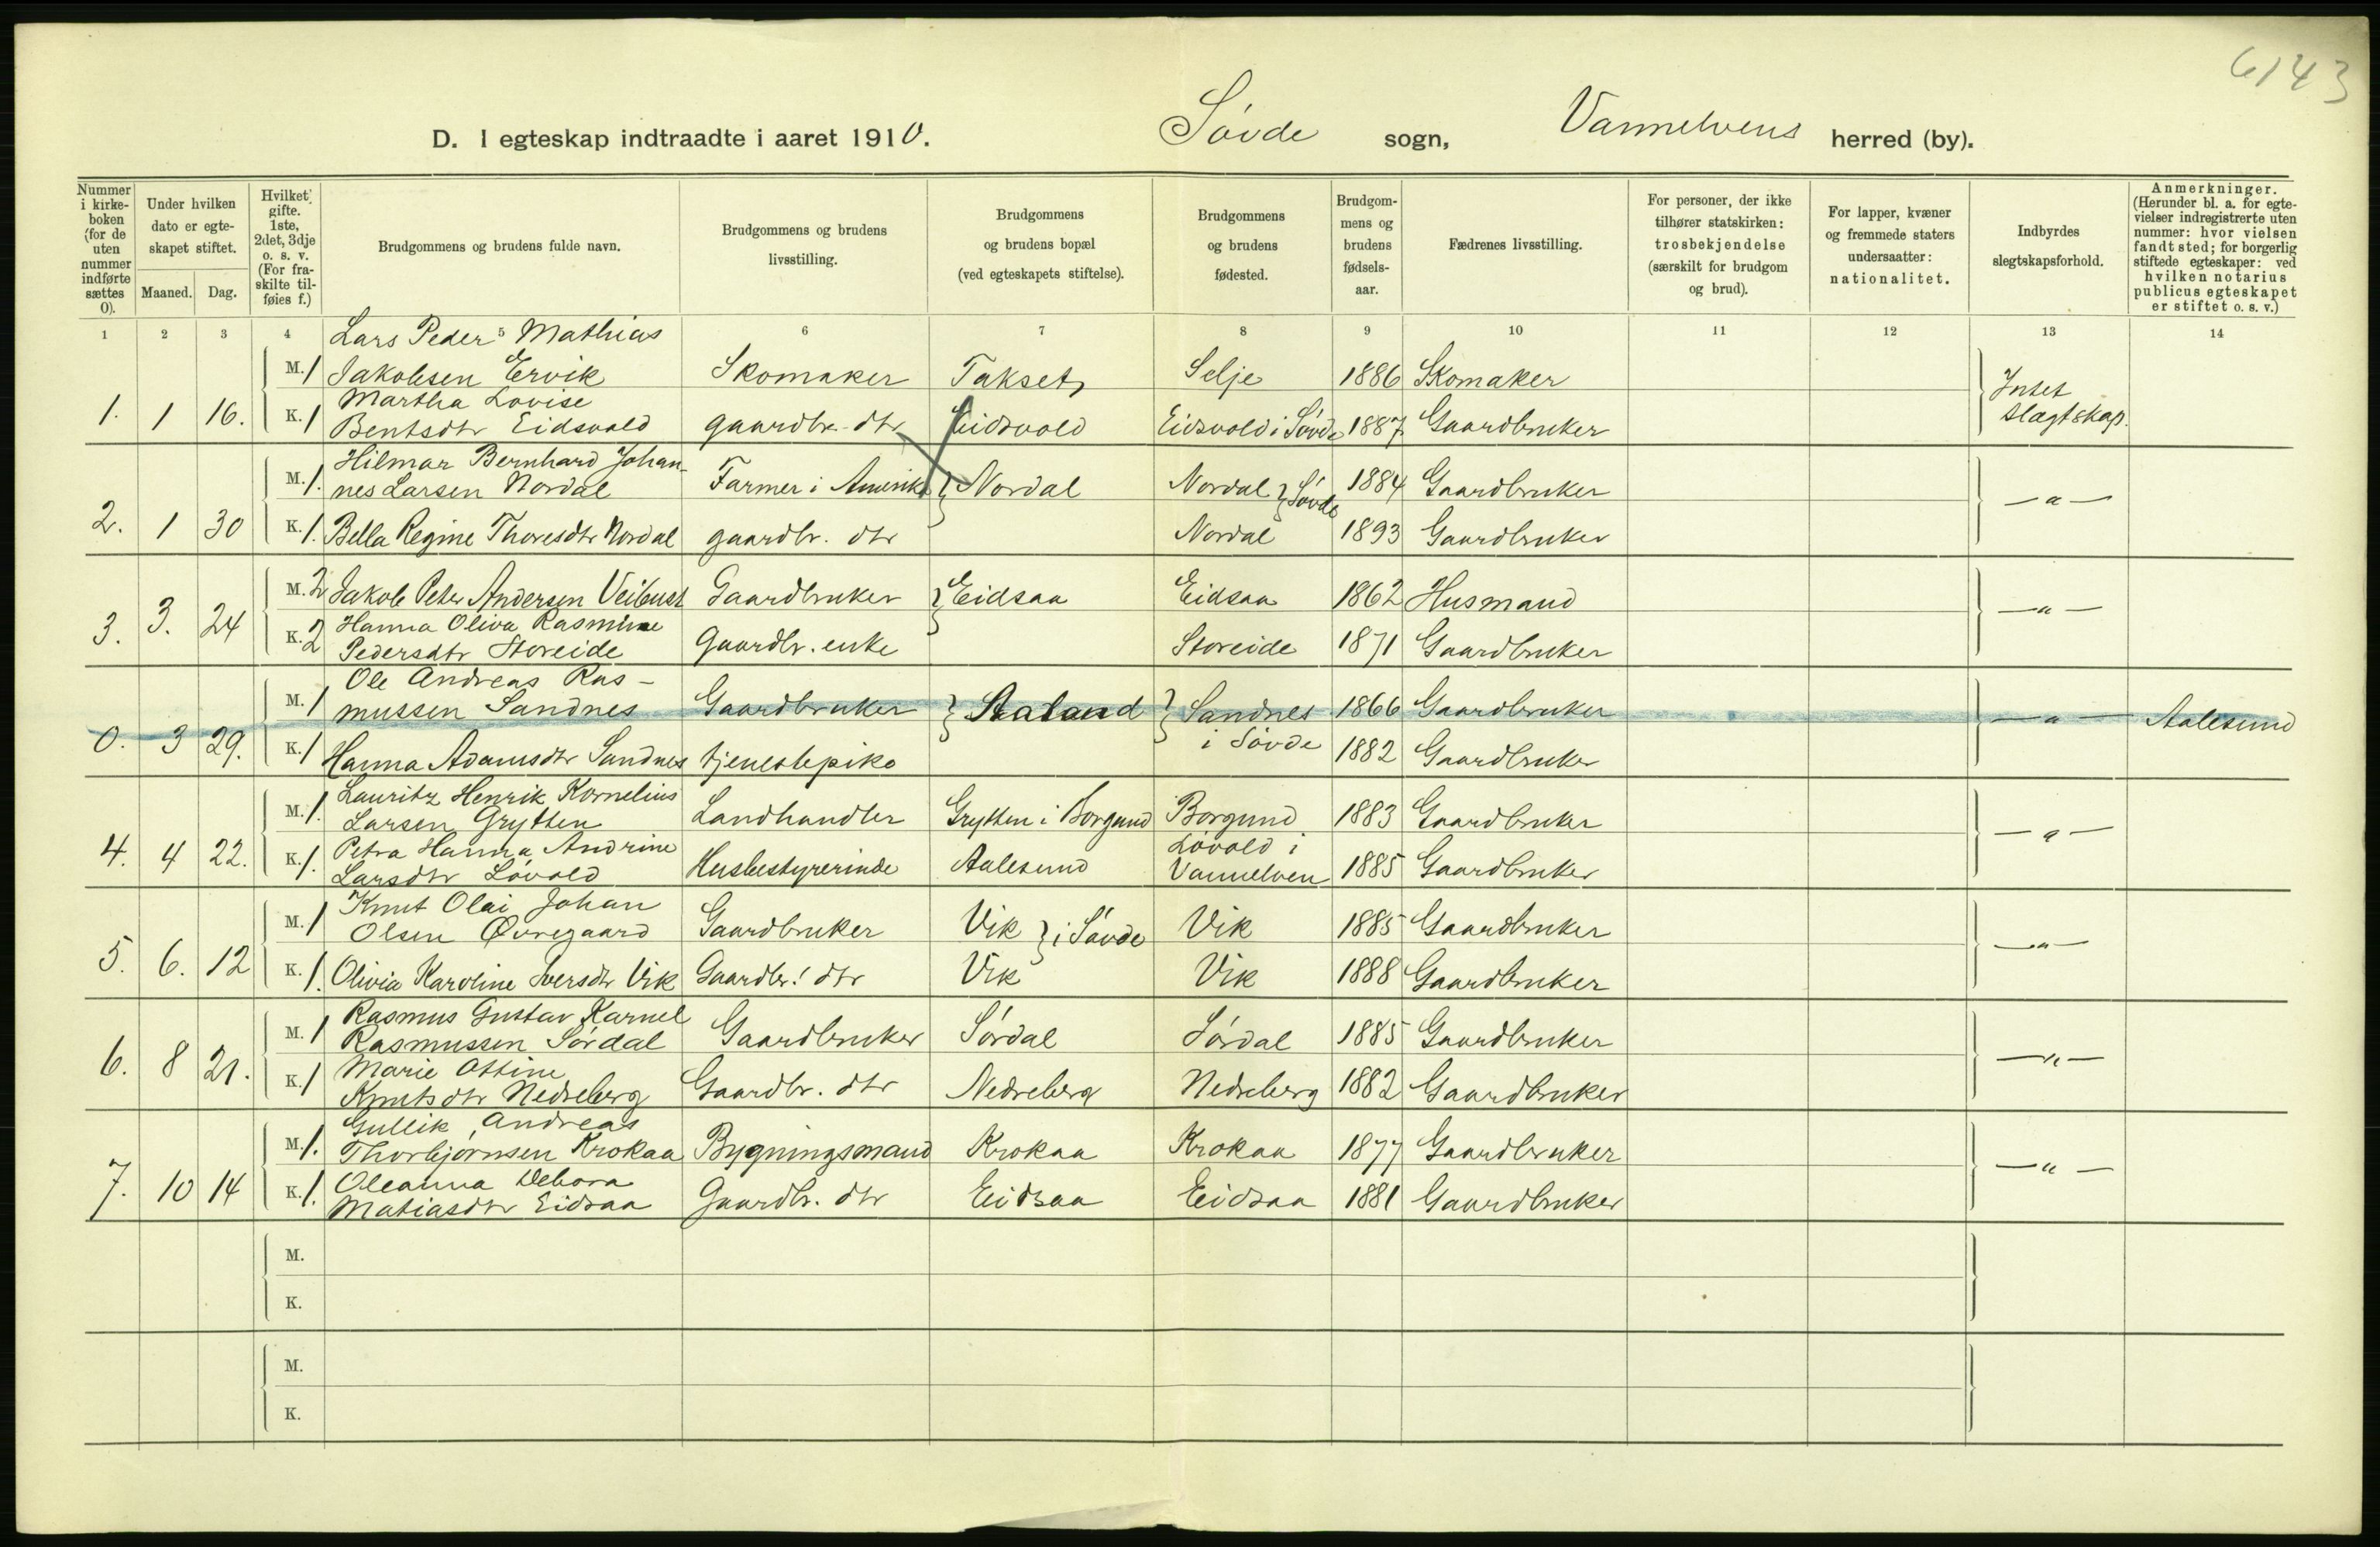 6143
D. I egteskap indtraadte i aaret 1910. Søvde sogn, Vannelvens herred (by).
Nummer i kirke-boken (for de uten nummer indførte sættes 0).
Under hvilken dato er egte-skapet stiftet.
Maaned. Dag.
Hvilket gifte. 1ste, 2det, 3dje o. s. v. (For fra-skilte til-føies f.)
Brudgommens og brudens fulde navn.
Brudgommens og brudens livsstilling.
Brudgommens og brudens bopæl (ved egteskapets stiftelse).
Brudgommens og brudens fødested.
Brudgom-mens og brudens fødsels-aar.
Fædrenes livsstilling.
For personer, der ikke tilhører statskirken: trosbekjendelse (særskilt for brudgom og brud).
For lapper, kvæner og fremmede staters undersaatter: nationalitet.
Indbyrdes slegtskapsforhold.
Anmerkninger. (Herunder bl. a. for egte-vielser indregistrerte uten nummer: hvor vielsen fandt sted; for borgerlig stiftede egteskaper: ved hvilken notarius publicus egteskapet er stiftet o. s. v.)
1 2 3 4 5 6 7 8 9 10 11 12 13 14
Lars Peder Mathias
M. 1 Jakobsen Ervik Skomaker Takset Selje 1886 Skomaker
Intet slægtskap.
1. 1 16. K. 1 Martha Lovise
Bentsdtr Eidsvold gaardbr. dtr Eidsvold Eidsvold i Søvde 1887 Gaardbruker
M. 1. Hilmar Bernhard Johan-
nes Larsen Nordal Farmer i Amerika } Nordal Nordal } Søvde 1884 Gaardbruker — " —
2. 1 30 K. 1. Bella Regine Thoresdtr Nordal gaardbr. dtr Nordal 1893 Gaardbruker
M. 2 Jakob Peter Andersen Veibust Gaardbruker } Eidsaa Eidsaa 1862 Husmand — " —
3. 3. 24 K. 2 Hanna Oliva Rasmine
Pedersdtr Storeide Gaardbr. enke Storeide 1871 Gaardbruker
M. 1 Ole Andreas Ras-
mussen Sandnes Gaardbruker } Staland } Sandnes i Søvde 1866 Gaardbruker — " — Aalesund
0. 3 29. K. 1 Hanna Adamsdtr Sandnes tjenestepike 1882 Gaardbruker
M. 1. Lauritz Henrik Kornelius
Larsen Grytten Landhandler Grytten i Borgund Borgund 1883 Gaardbruker — " —
4. 4 22. K. 1. Petra Hanna Andrine
Larsdtr Løvold Husbestyrerinde Aalesund Løvold i Vannelven 1885 Gaardbruker
M. 1 Knut Olai Johan
Olsen Øvregaard Gaardbruker Vik } i Søvde Vik 1885 Gaardbruker — " —
5. 6. 12 K. 1. Olivia Karoline Iversdtr Vik Gaardbr. dtr Vik Vik 1888 Gaardbruker
M. 1 Rasmus Gustav Karnel
Rasmussen Sørdal Gaardbruker Sørdal Sørdal 1885 Gaardbruker — " —
6. 8 21. K. 1 Marie Ottine
Knutsdtr Nedreberg Gaardbr. dtr Nedreberg Nedreberg 1882 Gaardbruker
M. 1. Gullik Andreas
Thorbjørnsen Krokaa Bygningsmand Krokaa Krokaa 1877 Gaardbruker — " —
7. 10 14 K. 1. Oleanna Debora
Matiasdtr Eidsaa Gaardbr. dtr Eidsaa Eidsaa 1881 Gaardbruker
M.
K.
M.
K.